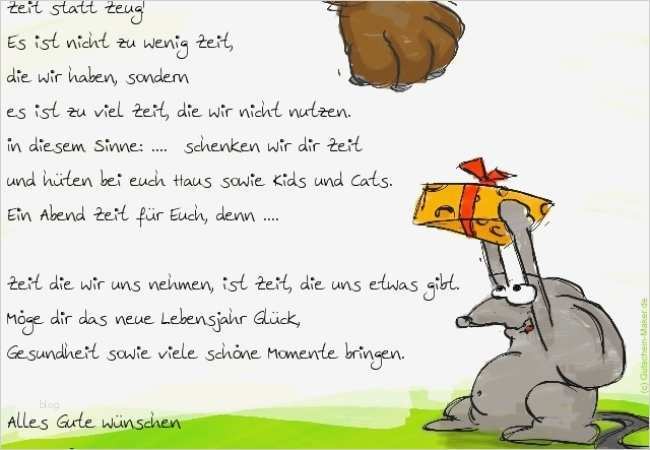 Zeit statt Zeug!
Es ist nicht zu wenig Zeit,
die wir haben, sondern
es ist zu viel Zeit, die wir nicht nutzen.
in diesem Sinne: .... schenken wir dir Zeit
und hüten bei euch Haus sowie Kids und Cats.
Ein Abend Zeit für Euch, denn ....
Zeit die wir uns nehmen, ist Zeit, die uns etwas gibt.
Möge dir das neue Lebensjahr Glück,
Gesundheit sowie viele schöne Momente bringen.
blog
Alles Gute wünschen
(c) Gutschein-Maker.de